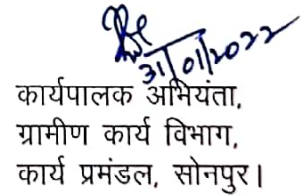 31/01/2022
कार्यपालक अभियंता,
ग्रामीण कार्य विभाग,
कार्य प्रमंडल, सोनपुर।